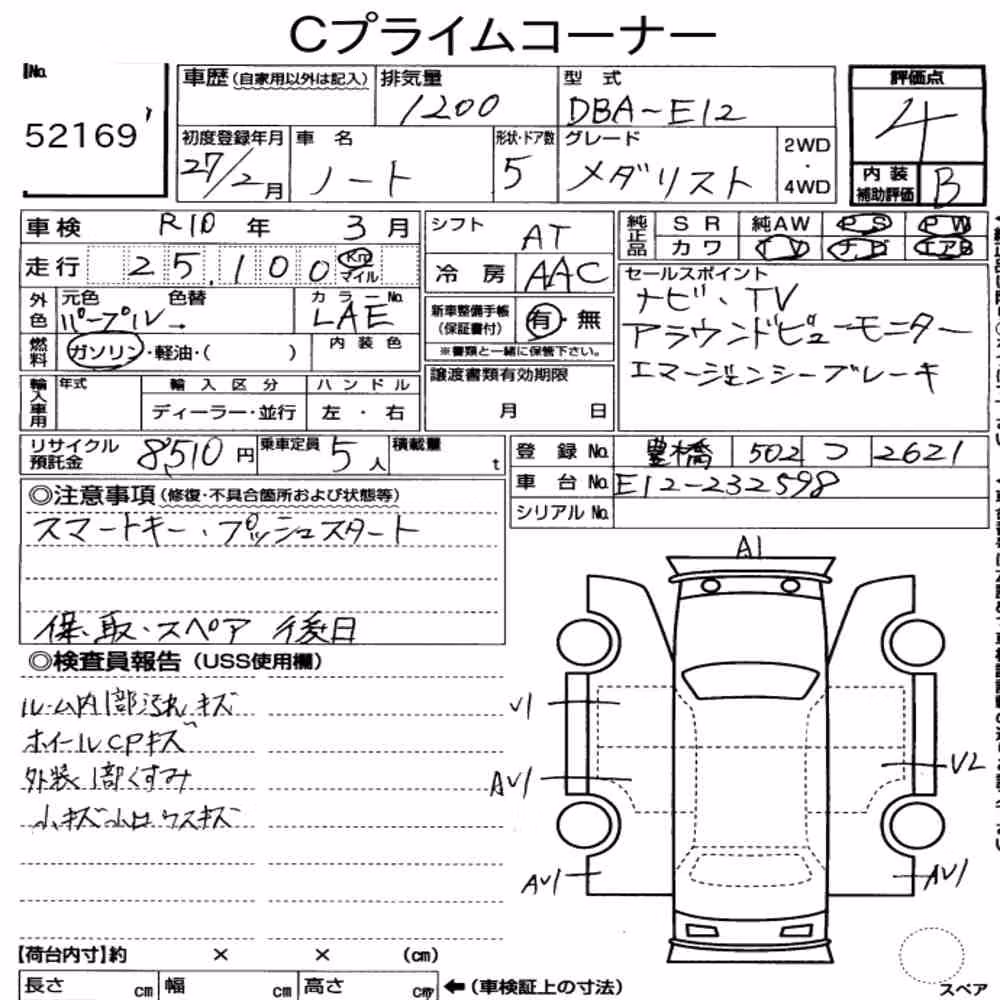 Cプライムコーナー
No.
52169
車歴(自家用以外は記入)
排気量
1200
型 式
DBA-E12
評価点
4
初度登録年月
27/2月
車 名
ノート
形状・ドア数
5
グレード
メダリスト
2WD
・
4WD
内 装
補助評価
B
車検
R10 年 3 月
走行
25,100
Km
マイル
外色
元色 色替
パープル→
カ ラ ー No.
LAE
燃料
ガソリン・軽油・( )
内 装 色
輸入車用
年式
輸 入 区 分
ディーラー・並行
ハ ン ド ル
左 ・ 右
シフト
AT
冷 房
AAC
新車整備手帳
(保証書付)
有・無
※書類と一緒に保管下さい。
譲渡書類有効期限
月 日
純正品
S R
純AW
P S
P W
カ ワ
T V
ナ ビ
エアB
セールスポイント
ナビ・TV
アラウンドビューモニター
エマージェンシーブレーキ
リサイクル
預託金
8,510 円
乗車定員
5 人
積載量
t
登 録 No.
豊橋 502 つ 2621
車 台 No.
E12-232598
シリアル No.
◎注意事項(修復・不具合箇所および状態等)
スマートキー、プッシュスタート
保、取・スペア 後日
◎検査員報告(USS使用欄)
ルーム内1部汚れ キズ
ホイールCPキズ
外装1部くすみ
小キズ小凹 ウスキズ
A1
V1
AV1
AV1
V2
AV1
【荷台内寸】約 × × (cm)
長さ cm
幅 cm
高さ cm
←(車検証上の寸法)
スペア